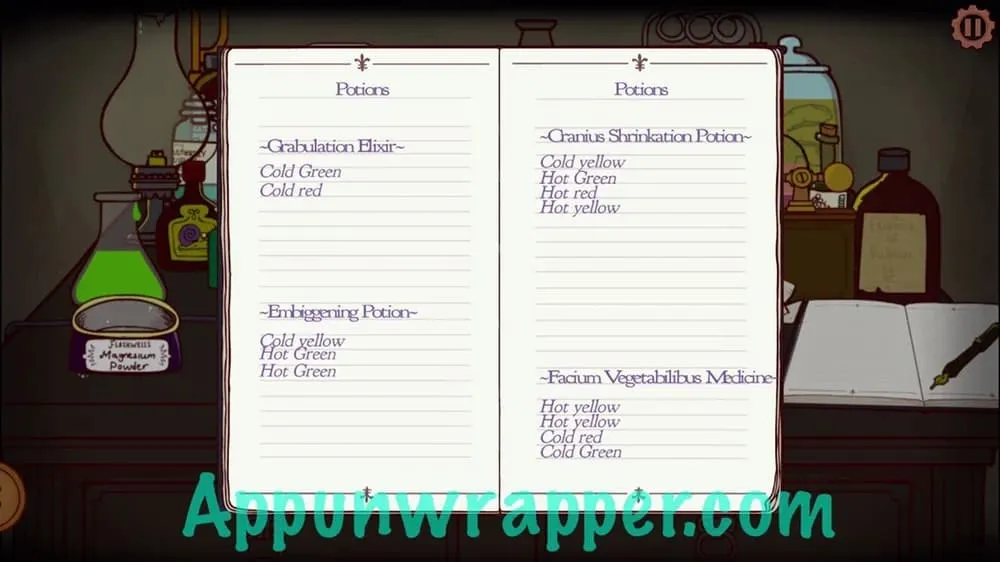 Potions
~Grabulation Elixir~
Cold Green
Cold red
~Embiggening Potion~
Cold yellow
Hot Green
Hot Green
Potions
~Cranius Shrinkation Potion~
Cold yellow
Hot Green
Hot red
Hot yellow
~Facium Vegetabilibus Medicine~
Hot yellow
Hot yellow
Cold red
Cold Green
FLASHWELLS
Magnesium
Powder
Appunwrapper.com